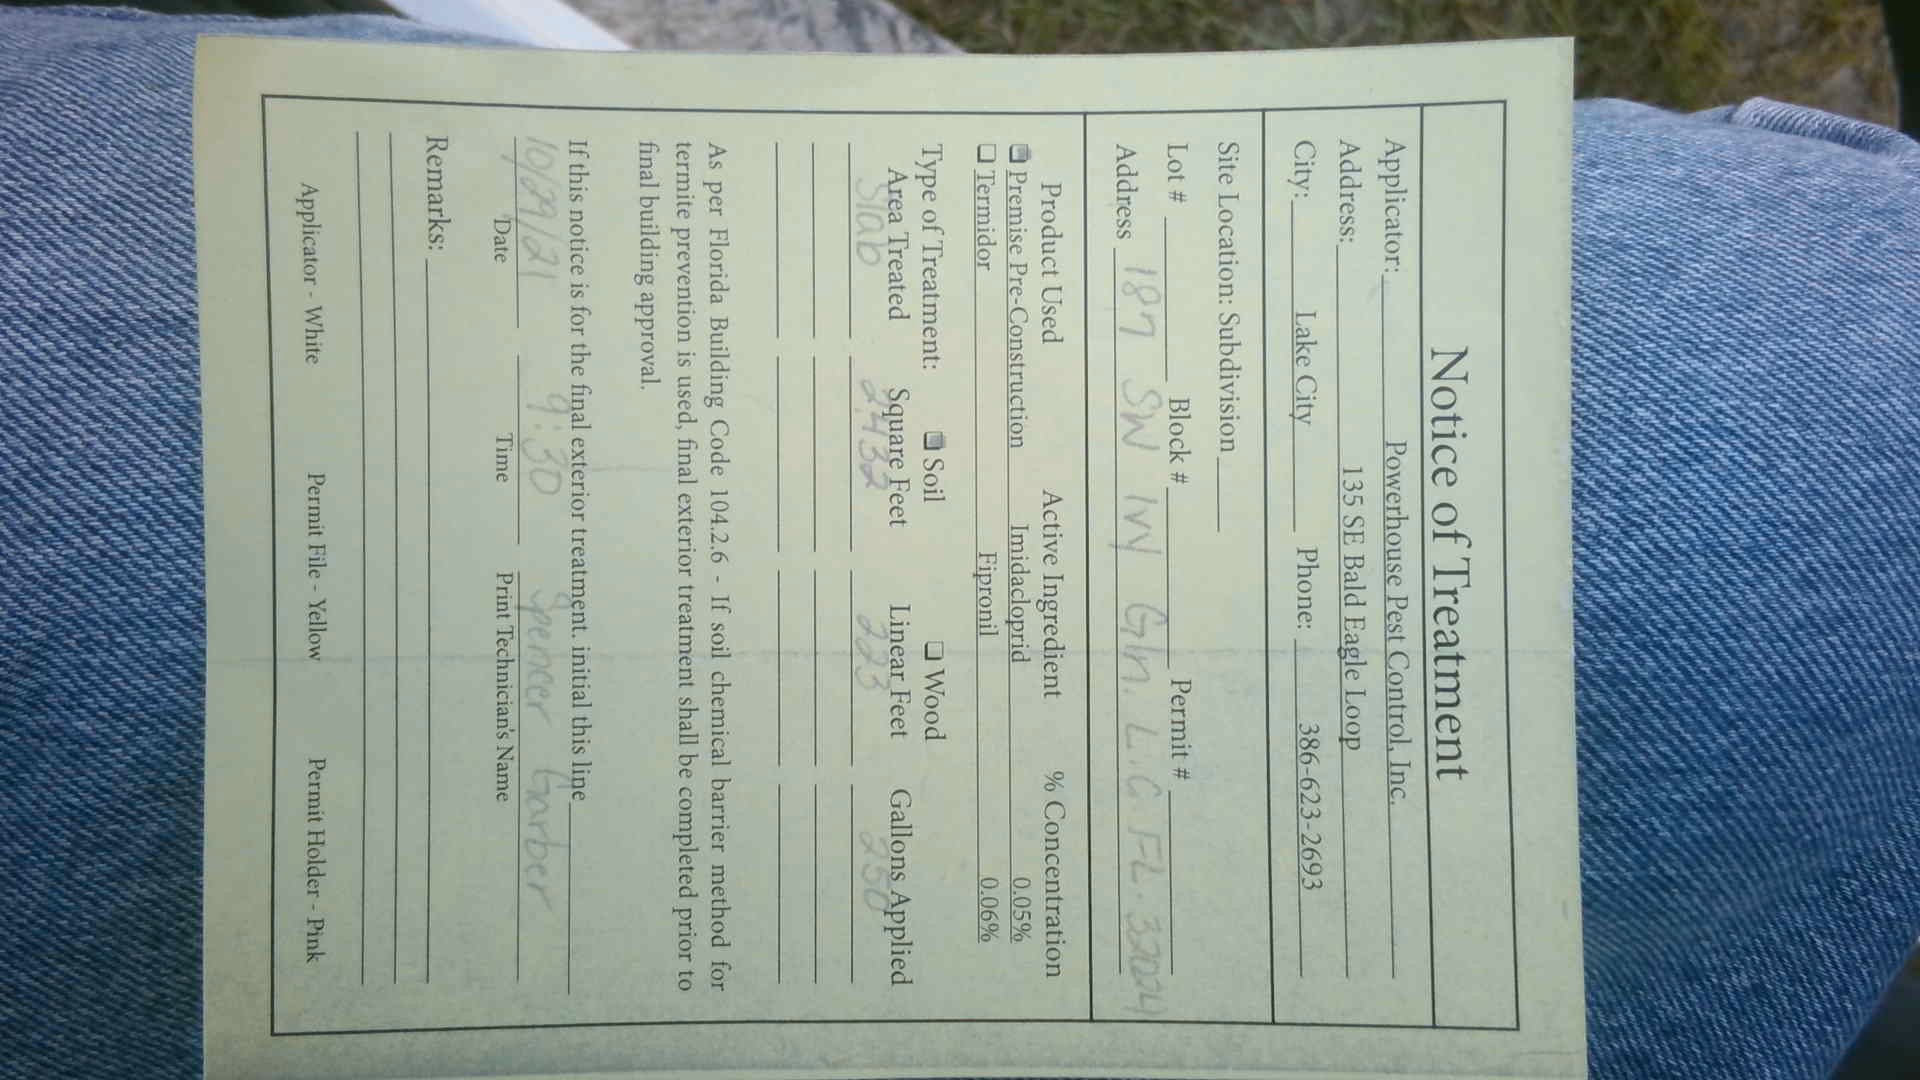 Notice of Treatment
Applicator: Powerhouse Pest Control, Inc.
Address: 135 SE Bald Eagle Loop
City: Lake City Phone: 386-623-2693
Site Location: Subdivision
Lot # Block # Permit #
Address 187 SW Ivy Gln. L.C. FL. 32024
Product Used Active Ingredient % Concentration
Premise Pre-Construction Imidacloprid 0.05%
Termidor Fipronil 0.06%
Type of Treatment: Soil Wood
Area Treated Square Feet Linear Feet Gallons Applied
Slab 2432 223 250
As per Florida Building Code 104.2.6 - If soil chemical barrier method for
termite prevention is used, final exterior treatment shall be completed prior to
final building approval.
If this notice is for the final exterior treatment, initial this line
10/29/21 9:30 Spencer Garber
Date Time Print Technician's Name
Remarks:
Applicator - White Permit File - Yellow Permit Holder - Pink